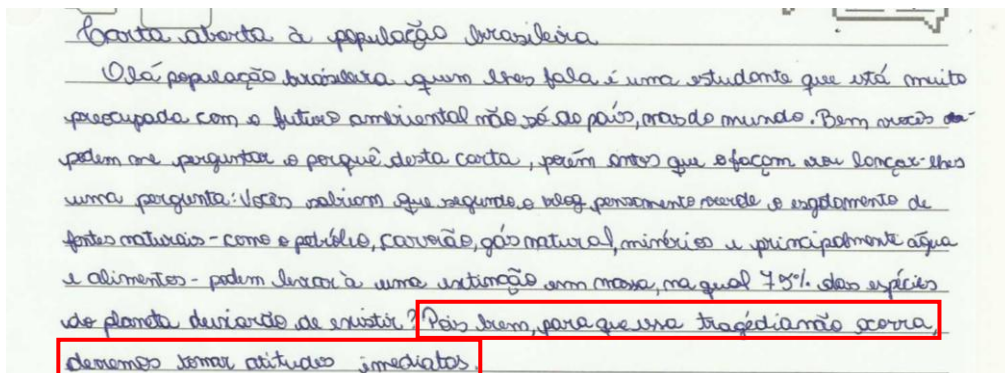 Carta aberta à população brasileira
Olá população brasileira quem lhes fala é uma estudante que está muito
preocupada com o futuro ambiental não só do país, mas do mundo. Bem vocês
podem me perguntar o porquê desta carta, porém antes que o façam vou lançar-lhes
uma pergunta: Vocês sabiam que segundo o blog pensamento verde o esgotamento de
fontes naturais - como o petróleo, carvão, gás natural, minérios e principalmente água
e alimentos - podem levar à uma extinção em massa, na qual 75% das espécies
do planeta deixarão de existir? Pois bem, para que essa tragédia não ocorra,
devemos tomar atitudes imediatas.